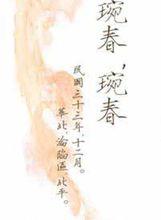 琬春，琬春
民國三十三年，十二月。
華北，淪陷區，北平。